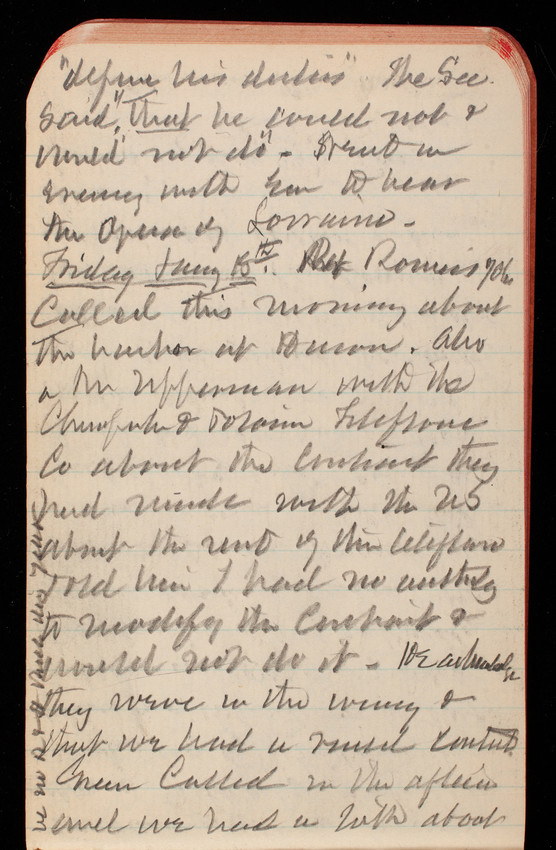 "define his duties" The Sec.
said, "that he could not &
would not do" - Went in
evening with Gen to hear
the Opera of Lorraine -
Friday Jany 15th. Rep Romeis of Oh
Called this morning about
the harbor at Huron. Also
a Mr Upperman with the
Chesapeake & Potomac Telephone
Co about the Contract they
had made with the US
about the rent of the telephone
Told him I had no authority
to modify the Contract &
would not do it - He acknowledge
they were in the wrong &
that we had a valid Contract
Green Called in the after
and we had a talk about